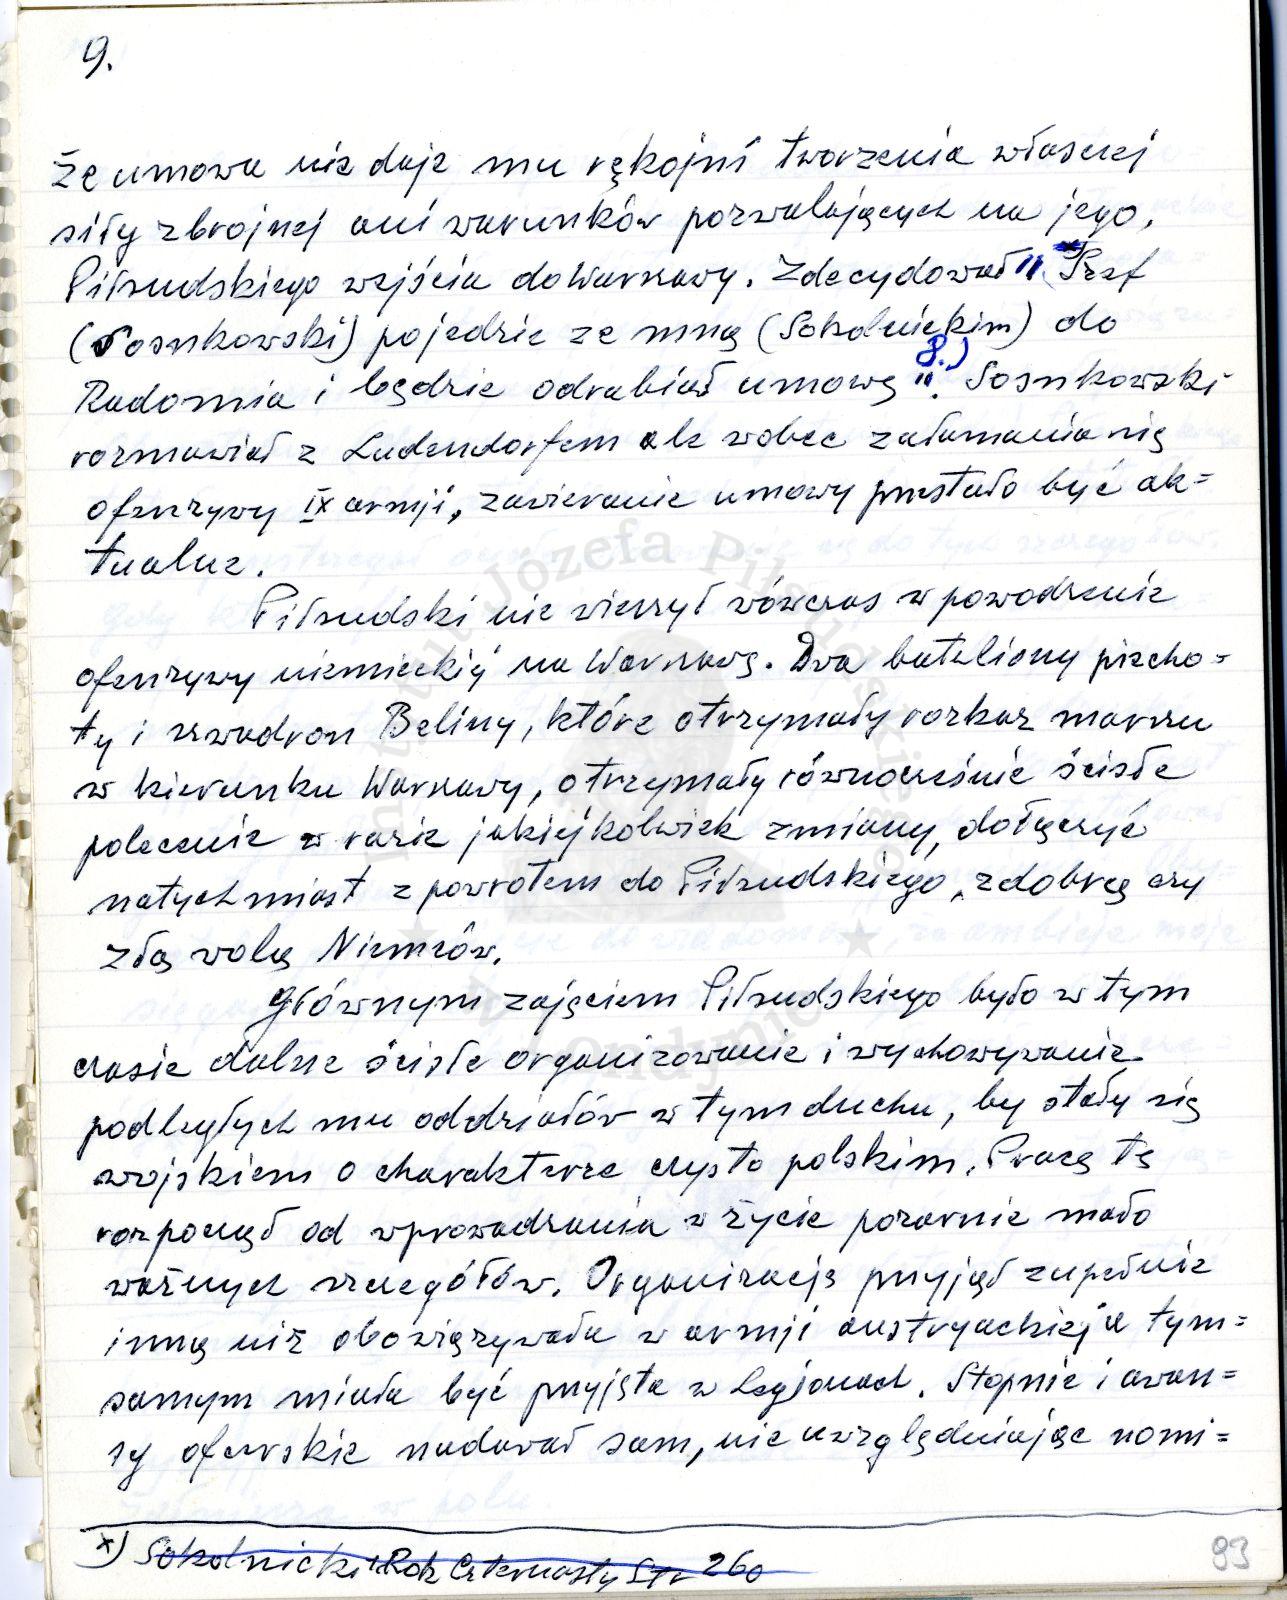 9.
że umowa nie daje mu rękojmi tworzenia własnej
siły zbrojnej ani warunków pozwalających na jego,
Piłsudskiego wejścia do Warszawy. Zdecydował "Szef
(Sosnkowski) pojedzie ze mną (Sokolnickim) do
Radomia i będzie odrabiał umowę". 8.) Sosnkowski
rozmawiał z Ludendorfem ale wobec załamania się
ofenzywy IX armji, zawieranie umowy przestało być ak=
tualne.
Piłsudski nie wierzył wówczas w powodzenie
ofenzywy niemieckiej na Warszawę. Dwa bataliony piecho=
ty i szwadron Beliny, które otrzymały rozkaz marszu
w kierunku Warszawy, otrzymały równocześnie ścisłe
polecenie w razie jakiejkolwiek zmiany, dołączyć
natychmiast z powrotem do Piłsudskiego, z dobrą czy
złą wolą Niemców.
Głównym zajęciem Piłsudskiego było w tym
czasie dalsze ścisłe organizowanie i wychowywanie
podległych mu oddziałów w tym duchu, by stały się
wojskiem o charakterze czysto polskim. Pracę tę
rozpoczął od wprowadzania w życie pozornie mało
ważnych szczegółów. Organizację przyjął zupełnie
inną niż obowiązywała w armji austryackiej a tym=
samym miała być przyjęta w Legjonach. Stopnie i awan=
sy oficerskie nadawał sam, nie uwzględniając nomi=
x) Sokolnicki: Rok Czternasty Str 260
93
Instytut Józefa Piłsudskiego
w Londynie